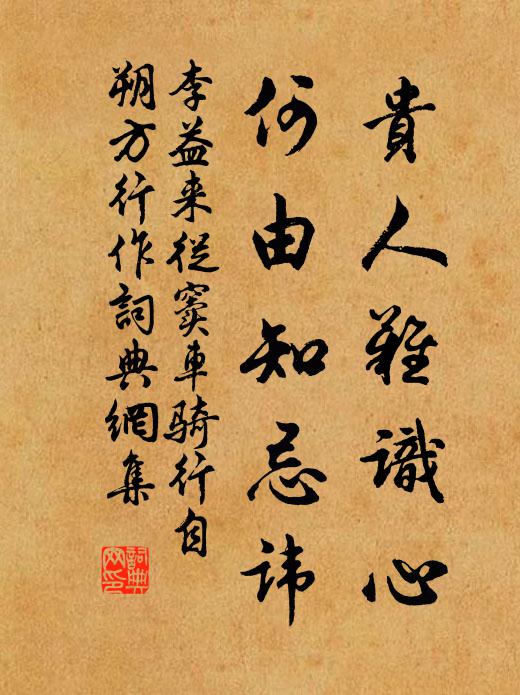 貴人難識心
何由知忌諱
李益来從竇車騎行自
朔方行作詞典網集
詞典
网印